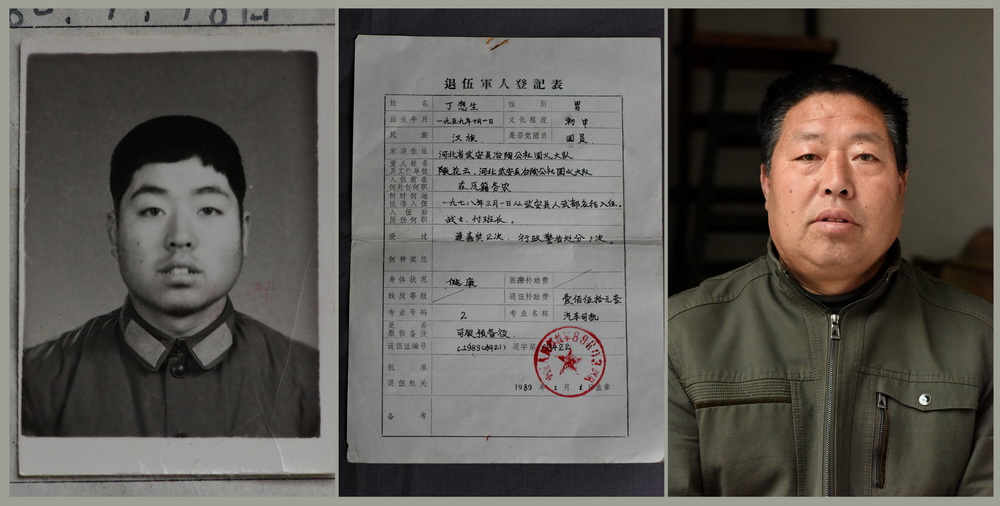 退伍軍人登記表
姓名 丁想生 性別 男
出生年月 一九五九年 月一日 文化程度 初中
民族 汉族 是否党团员 团员
家庭住址 河北省武安县冶陶公社固义大队
爱人姓名及工作单位 陈花云,河北武安县冶陶公社固义大队
入伍前在何处任何职 在原籍务农
何时何地批准入伍 一九七八年三月一日从武安县人武部应征入伍。
入伍后历任何职 战士、付班长。
受过何种奖惩 连嘉奖2次、行政警告处分1次。
身体状况 健康 医療补助费
残废等级 退伍补助费 壹佰伍拾元叁
专业号码 2 专业名称 汽车司机
是否服預备役 可服预备役
退伍证编号 退字第 22
批准退伍机关
1983年1月 日盖章
备考